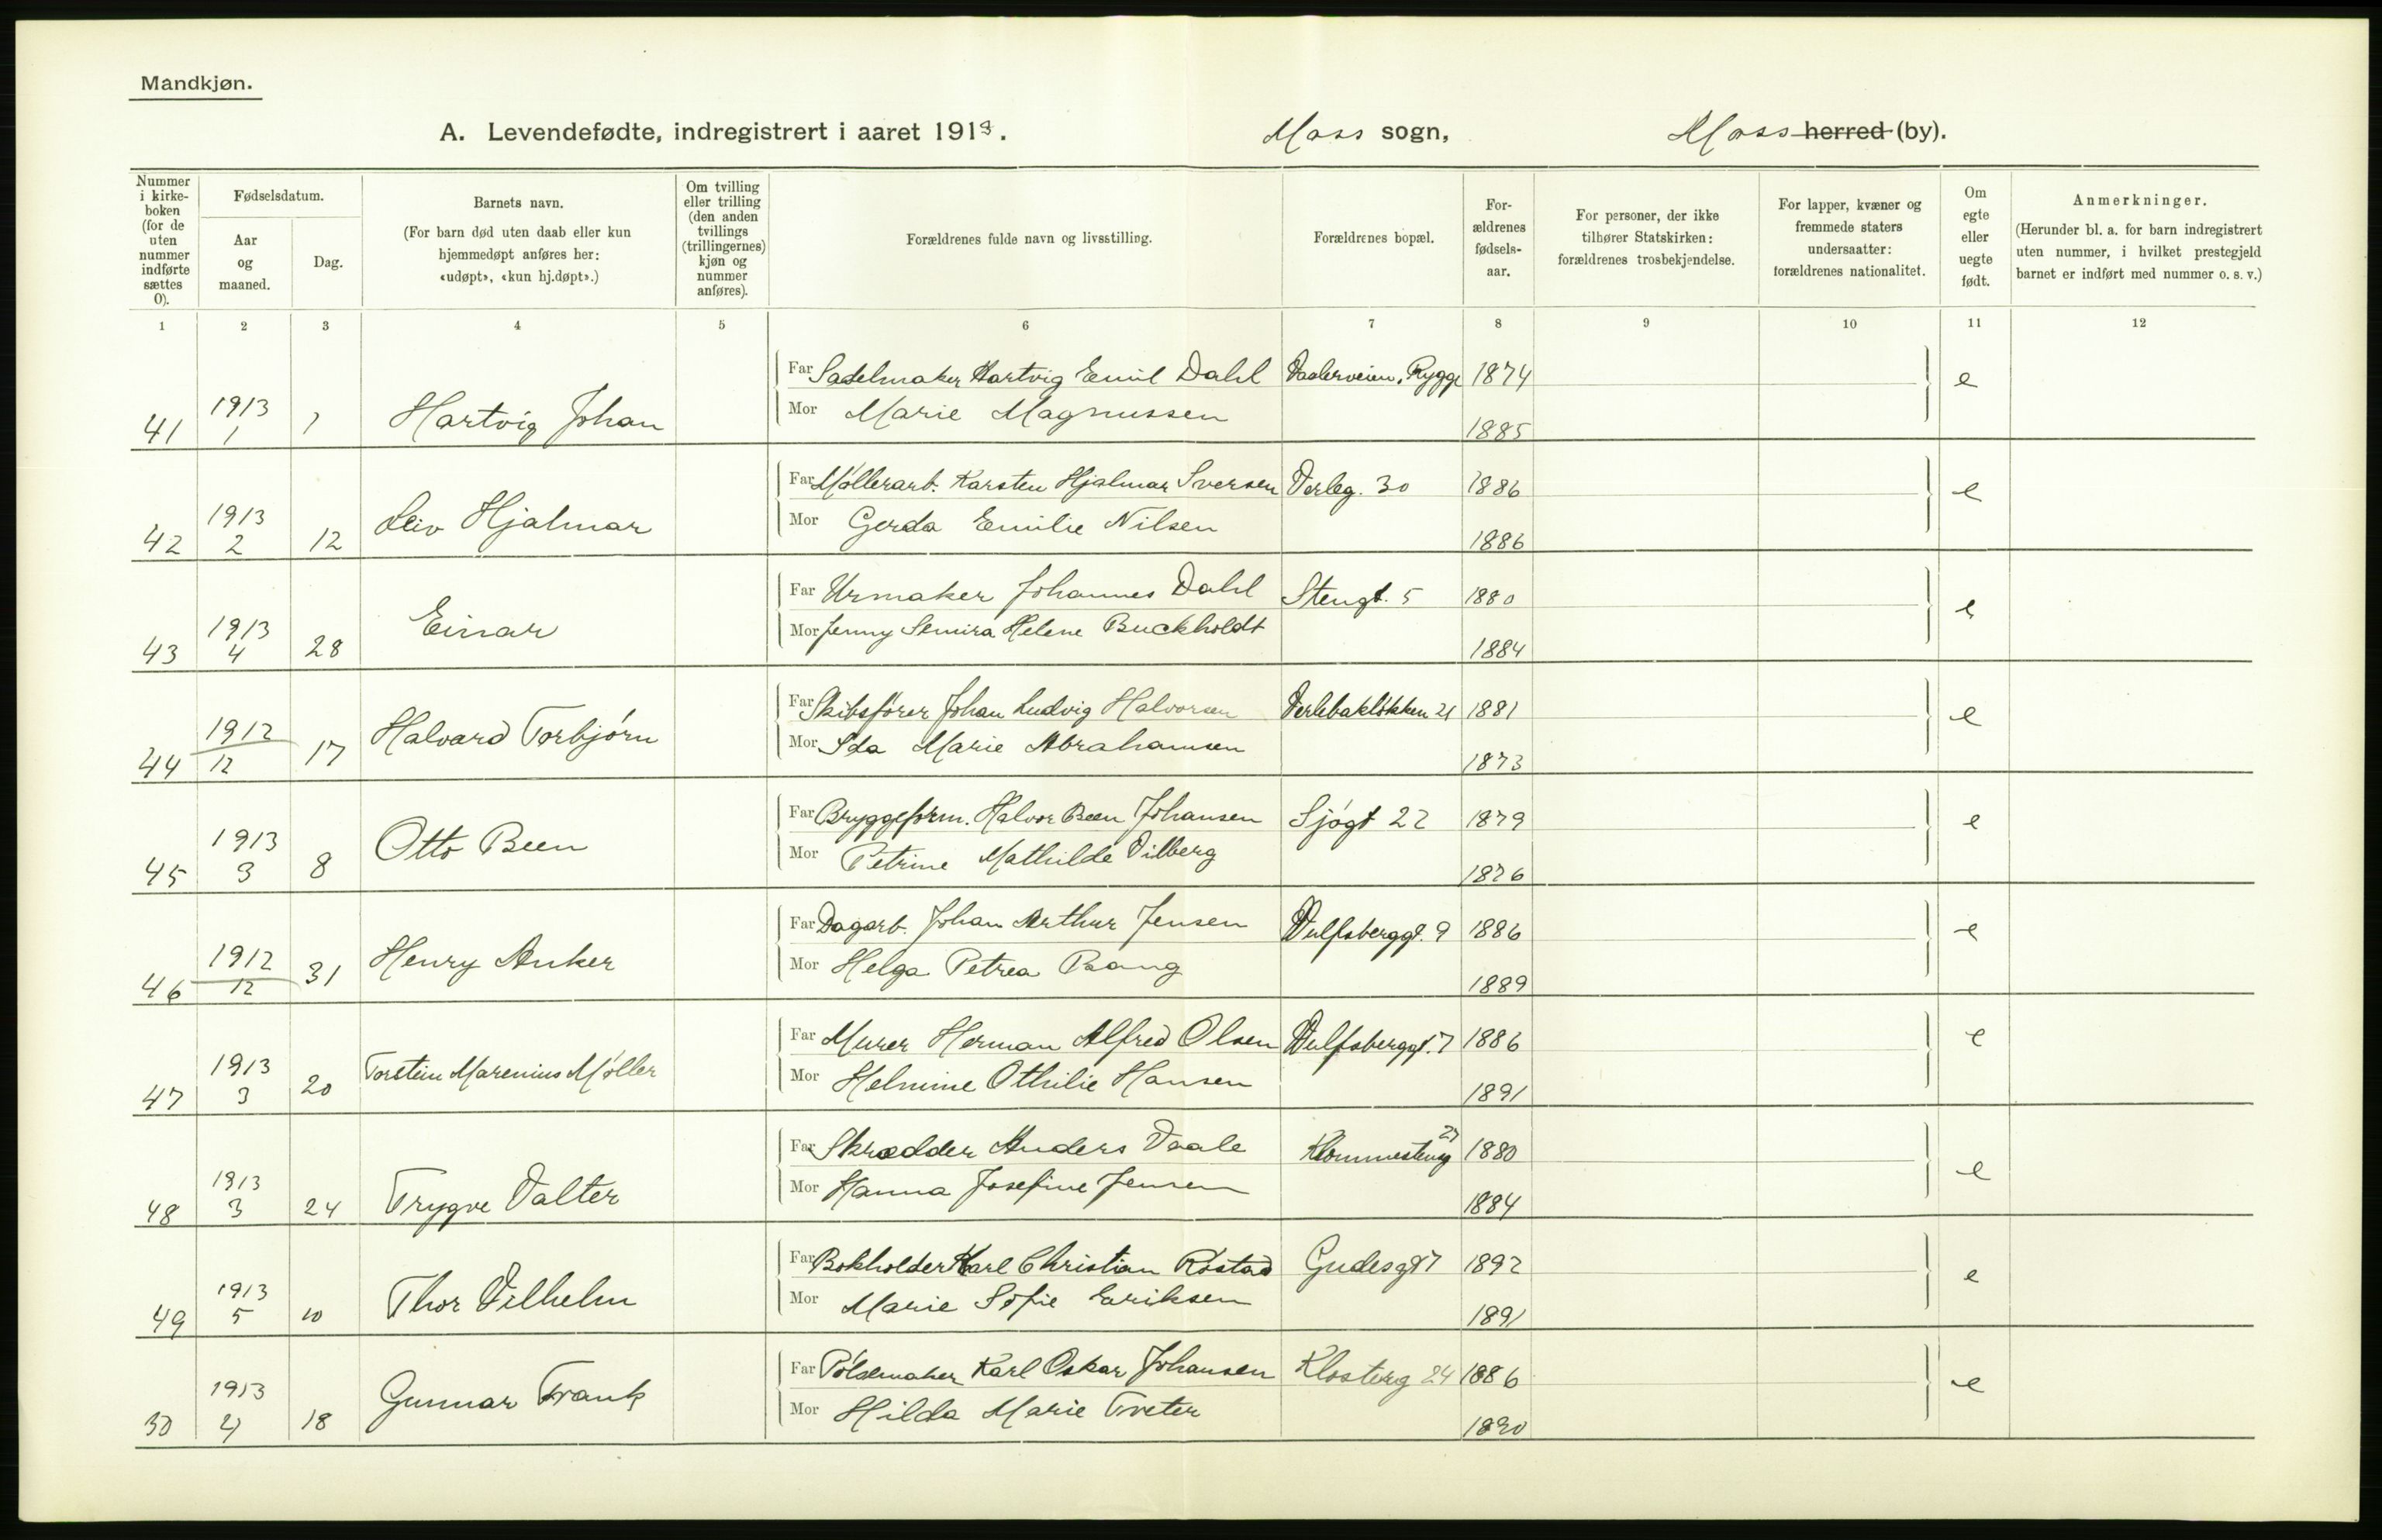 Mandkjøn.
A. Levendefødte, indregistrert i aaret 1913. Moss sogn, Moss herred (by).
Nummer i kirkeboken (for de uten nummer indførte sættes 0).
Fødselsdatum.
Aar og maaned.
Dag.
Barnets navn.
(For barn død uten daab eller kun hjemmedøpt anføres her: «udøpt», «kun hj.døpt».)
Om tvilling eller trilling (den anden tvillings (trillingernes) kjøn og nummer anføres).
Forældrenes fulde navn og livsstilling.
Forældrenes bopæl.
Forældrenes fødselsaar.
For personer, der ikke tilhører Statskirken: forældrenes trosbekjendelse.
For lapper, kvæner og fremmede staters undersaatter: forældrenes nationalitet.
Om egte eller uegte født.
Anmerkninger.
(Herunder bl. a. for barn indregistrert uten nummer, i hvilket prestegjeld barnet er indført med nummer o. s. v.)
1 2 3 4 5 6 7 8 9 10 11 12
Far Sadelmaker Hartvig Emil Dahl Vaalerveien, Rygge 1874 e
41 1913 1 1 Hartvig Johan Mor Marie Magnussen 1885
Far Møllerarb. Karsten Hjalmar Iversen Verleg. 30 1886 e
42 1913 2 12 Leiv Hjalmar Mor Gerda Emilie Nilsen 1886
Far Urmaker Johannes Dahl Stengt. 5 1880 e
43 1913 4 28 Einar Mor Jenny Semira Helene Buckholdt 1884
Far Skibsfører Johan Ludvig Halvorsen Verlebakløkken 21 1881 e
44 1912 12 17 Halvard Torbjørn Mor Ida Marie Abrahamsen 1873
Far Bryggeform. Halvor Been Johansen Sjøgt 22 1879 e
45 1913 3 8 Otto Been Mor Petrine Mathilde Vilberg 1876
Far Dagarb. Johan Arthur Jensen Wulfsberggt. 9 1886 e
46 1912 12 31 Henry Anker Mor Helga Petrea Bang 1889
Far Murer Herman Alfred Olsen Wulfsberggt. 7 1886 e
47 1913 3 20 Torstein Marenius Møller Mor Helmine Othilie Hansen 1891
Far Skrædder Anders Vaale Klommesteng 27 1880 e
48 1913 3 24 Trygve Valter Mor Hanna Josefine Jensen 1884
Far Bokholder Karl Christian Røstad Gudesgt 7 1892 e
49 1913 5 10 Thor Vilhelm Mor Marie Sofie Eriksen 1891
Far Pølsemaker Karl Oskar Johansen Klosterg 24 1886 e
50 1913 4 18 Gunnar Frank Mor Hilda Marie Tveter 1890